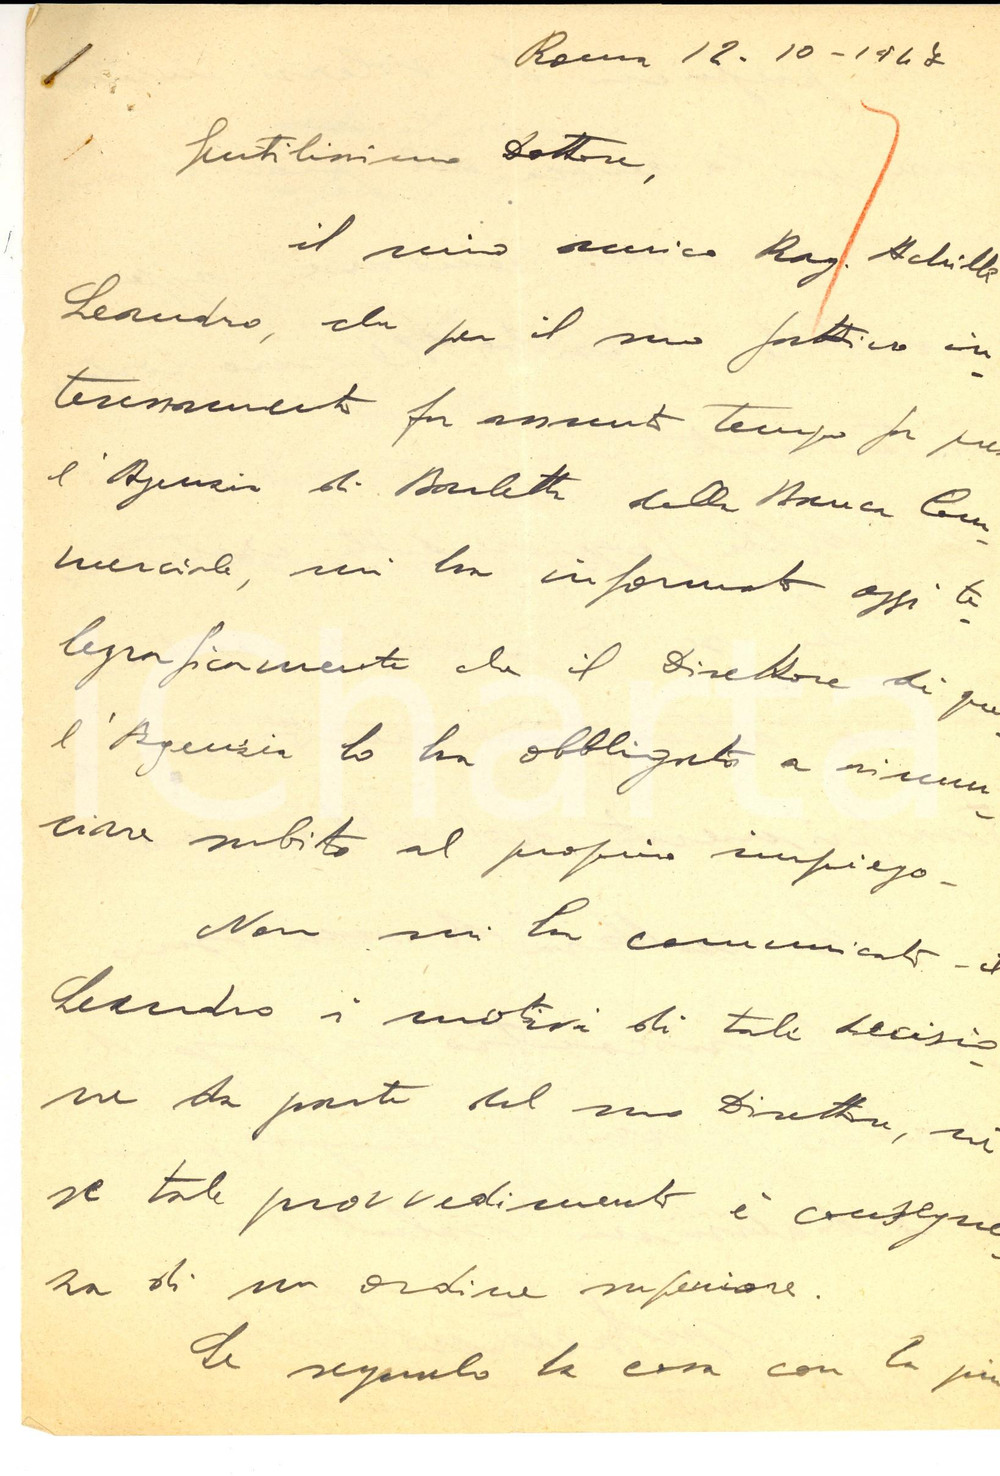 Roma 12. 10 - 1947
Gentilissimo Dottore,
il mio amico Rag. Achille
Leandro, che per il suo fattivo in-
teressamento fu assunto tempo fa pres
l'Agenzia di Barletta della Banca Com-
merciale, mi ha informato oggi te-
legraficamente che il Direttore di quel-
l'Agenzia lo ha obbligato a rinun-
ciare subito al proprio impiego -
Non mi ha comunicato - il
Leandro i motivi di tale decisio-
ne da parte del suo Direttore, nè
se tale provvedimento è conseguen-
za di un ordine superiore.
Le segnalo la cosa con la più